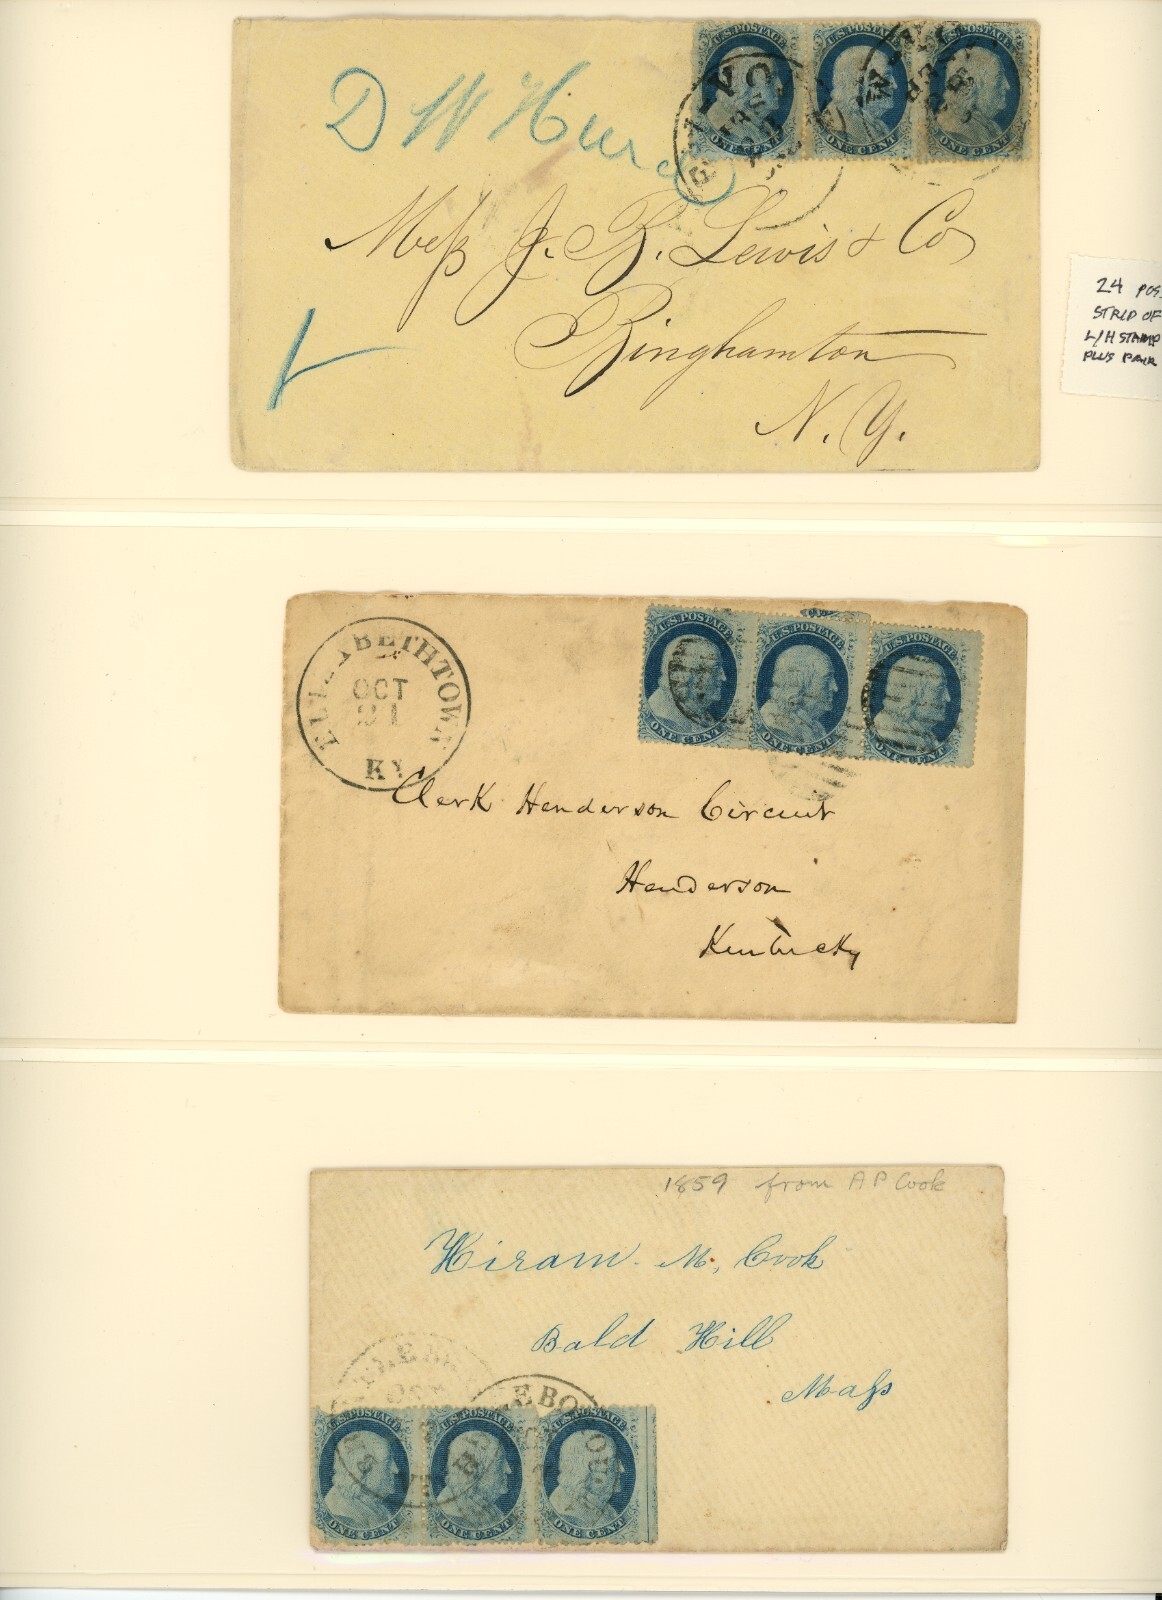 U.S. POSTAGE U.S. POSTAGE U.S. POSTAGE
ONE CENT ONE CENT ONE CENT
D W Hurd
Meſs J. B. Lewis & Co
Binghamton
N. Y.
24 POS
STRIP OF
L/H STAMP
PLUS PAIR
ELIZABETHTOWN
OCT
21
KY
U.S. POSTAGE U.S. POSTAGE U.S. POSTAGE
ONE CENT ONE CENT ONE CENT
Clerk Henderson Circuit
Henderson
Kentucky
1859 from A P Cook
Hiram M. Cook
Bald Hill
Maſs
U.S. POSTAGE U.S. POSTAGE U.S. POSTAGE
ONE CENT ONE CENT ONE CENT